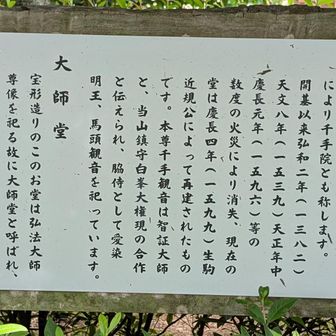 により千手院とも称します。
開基以来弘和二年(一三八二)
天文八年(一五三九)天正年中
慶長元年(一五九六)等の
数度の火災により消失、現在の
堂は慶長四年(一五九九)生駒
近規公によって再建されたもの
です。本尊千手観音は智証大師
と、当山鎮守白峯大権現の合作
と伝えられ、脇侍として愛染
明王、馬頭観音を祀っています。
大師堂
宝形造りのこのお堂は弘法大師
尊像を祀る故に大師堂と呼ばれ、